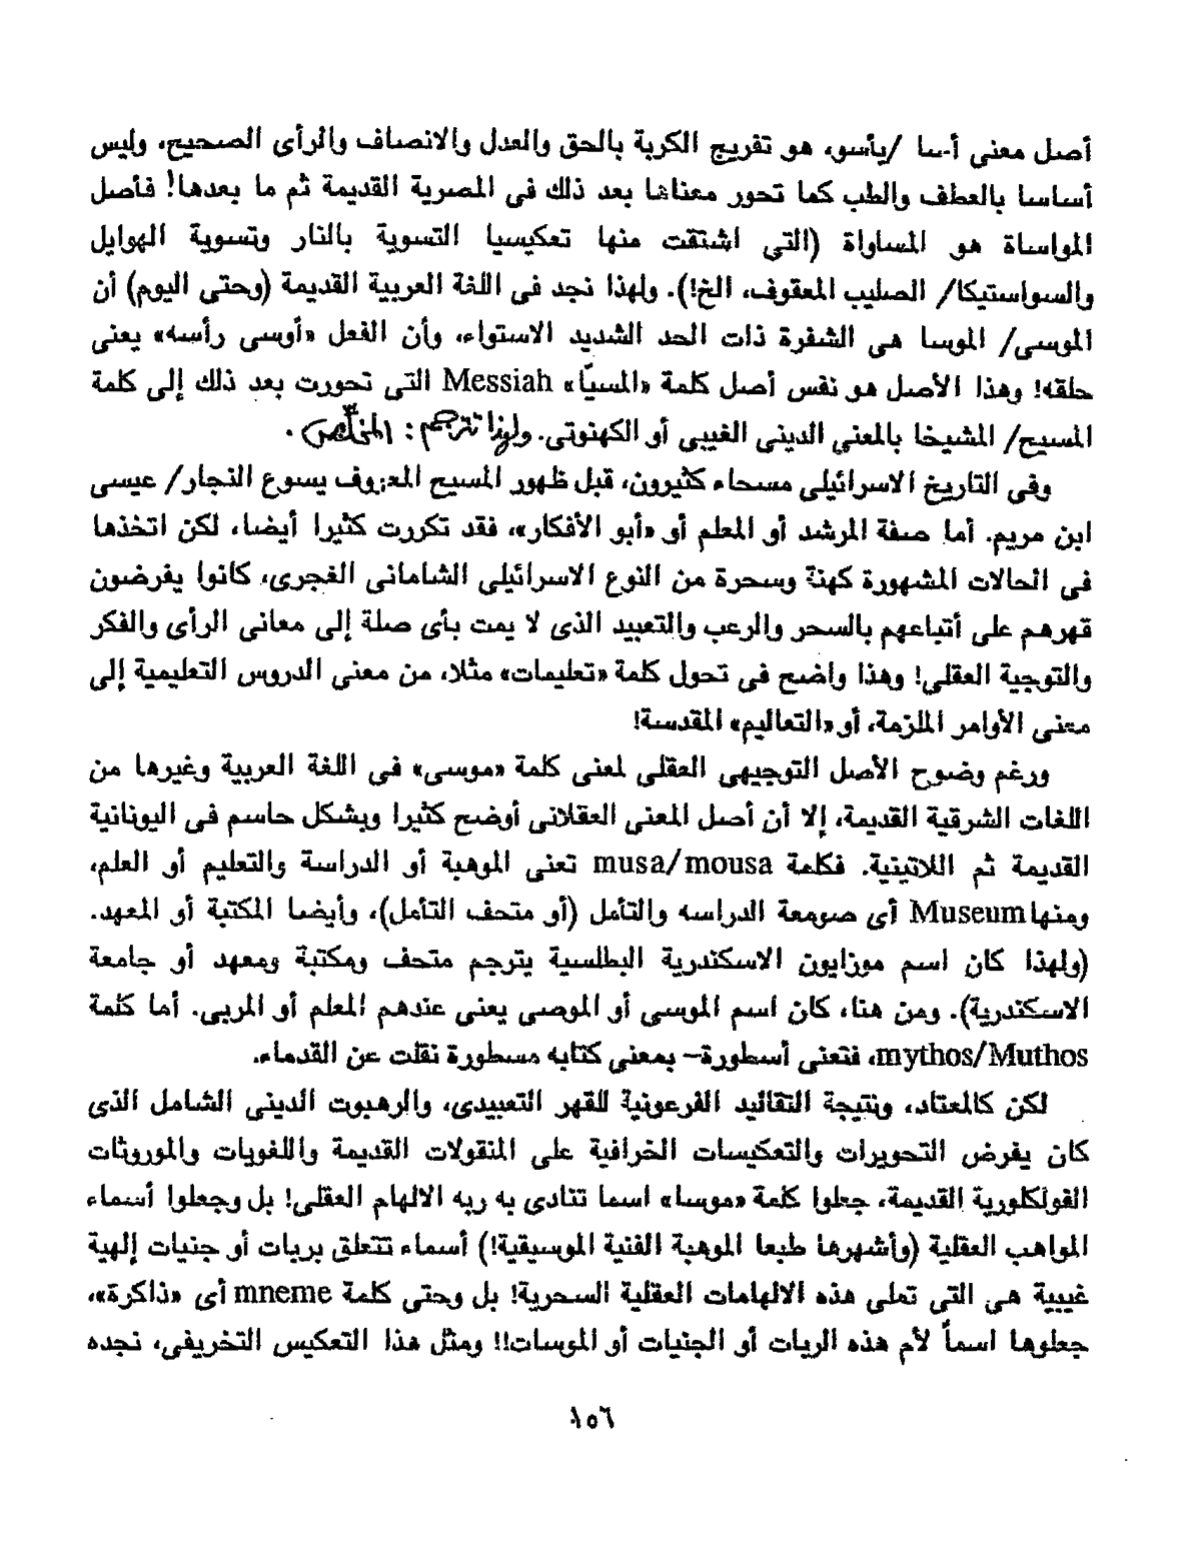 أصل معنى أسا /يأسو، هو تفريج الكربة بالحق والعدل والانصاف والرأى الصحيح، وليس
أساسا بالعطف والطب كما تحور معناها بعد ذلك فى المصرية القديمة ثم ما بعدها! فأصل
المواساة هو المساواة (التي اشتقت منها تعكيسيا التسوية بالنار وتسوية الهوايل
والسواستيكا/ الصليب المعقوف، الخ!). ولهذا نجد فى اللغة العربية القديمة (وحتى اليوم) أن
الموسى/ الموسا هى الشفرة ذات الحد الشديد الاستواء، وأن الفعل «أوسى رأسه» يعنى
حلقه! وهذا الأصل هو نفس أصل كلمة «المسيّا» Messiah التى تحورت بعد ذلك إلى كلمة
المسيح/ المشيخا بالمعنى الدينى الغيبى أو الكهنوتى. ولهذا تترجم: المخلّص.
وفى التاريخ الاسرائيلى مسحاء كثيرون، قبل ظهور المسيح المعروف يسوع النجار/ عيسى
ابن مريم. أما صفة المرشد أو المعلم أو «أبو الأفكار»، فقد تكررت كثيرا أيضا، لكن اتخذها
فى الحالات المشهورة كهنة وسحرة من النوع الاسرائيلى الشامانى الغجرى، كانوا يفرضون
قهرهم على أتباعهم بالسحر والرعب والتعبيد الذى لا يمت بأى صلة إلى معانى الرأى والفكر
والتوجية العقلى! وهذا واضح فى تحول كلمة «تعليمات» مثلا، من معنى الدروس التعليمية إلى
معنى الأوامر الملزمة، أو «التعاليم» المقدسة!
ورغم وضوح الأصل التوجيهى العقلى لمعنى كلمة «موسى» فى اللغة العربية وغيرها من
اللغات الشرقية القديمة، إلا أن أصل المعنى العقلانى أوضح كثيرا وبشكل حاسم فى اليونانية
القديمة ثم اللاتينية. فكلمة musa/mousa تعنى الموهبة أو الدراسة والتعليم أو العلم،
ومنها Museum أى صومعة الدراسه والتأمل (أو متحف التأمل)، وأيضا المكتبة أو المعهد.
(ولهذا كان اسم موزايون الاسكندرية البطلسية يترجم متحف ومكتبة ومعهد أو جامعة
الاسكندرية). ومن هنا، كان اسم الموسى أو الموصى يعنى عندهم المعلم أو المربى. أما كلمة
mythos/Muthos، فتعنى أسطورة– بمعنى كتابه مسطورة نقلت عن القدماء.
لكن كالمعتاد، ونتيجة التقاليد الفرعونية للقهر التعبيدى، والرهبوت الدينى الشامل الذى
كان يفرض التحويرات والتعكيسات الخرافية على المنقولات القديمة واللغويات والموروثات
الفولكلورية القديمة، جعلوا كلمة «موسا» اسما تنادى به ربه الالهام العقلى! بل وجعلوا أسماء
المواهب العقلية (وأشهرها طبعا الموهبة الفنية الموسيقية!) أسماء تتعلق بربات أو جنيات إلهية
غيبية هى التى تملى هذه الالهامات العقلية السحرية! بل وحتى كلمة mneme أى «ذاكرة»،
جعلوها اسماً لأم هذه الربات أو الجنيات أو الموسات!! ومثل هذا التعكيس التخريفى، نجده
١٥٦